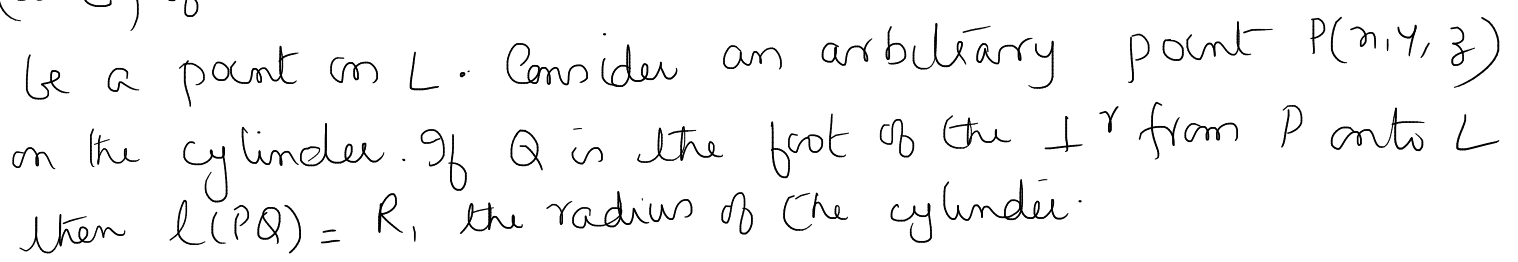 be a point on L. Consider an arbitrary point P(x,y,z)
on the cylinder. If Q is the foot of the ⊥r from P onto L
then l(PQ) = R, the radius of the cylinder.